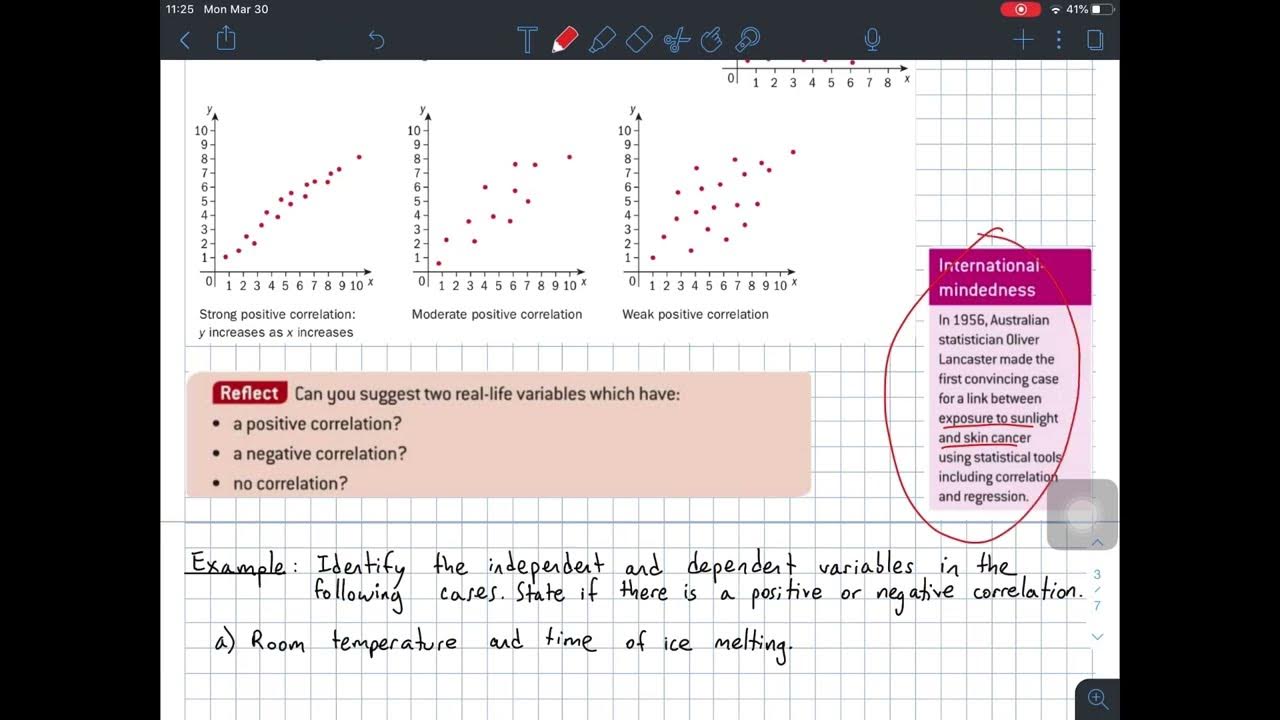 11:25 Mon Mar 30
41%
T
0 1 2 3 4 5 6 7 8 x
y
10
9
8
7
6
5
4
3
2
1
0 1 2 3 4 5 6 7 8 9 10 x
Strong positive correlation:
y increases as x increases
y
10
9
8
7
6
5
4
3
2
1
0 1 2 3 4 5 6 7 8 9 10 x
Moderate positive correlation
y
10
9
8
7
6
5
4
3
2
1
0 1 2 3 4 5 6 7 8 9 10 x
Weak positive correlation
International-
mindedness
In 1956, Australian
statistician Oliver
Lancaster made the
first convincing case
for a link between
exposure to sunlight
and skin cancer
using statistical tools
including correlation
and regression.
Reflect Can you suggest two real-life variables which have:
• a positive correlation?
• a negative correlation?
• no correlation?
Example: Identify the independent and dependent variables in the
following cases. State if there is a positive or negative correlation.
a) Room temperature and time of ice melting.
3
/
7